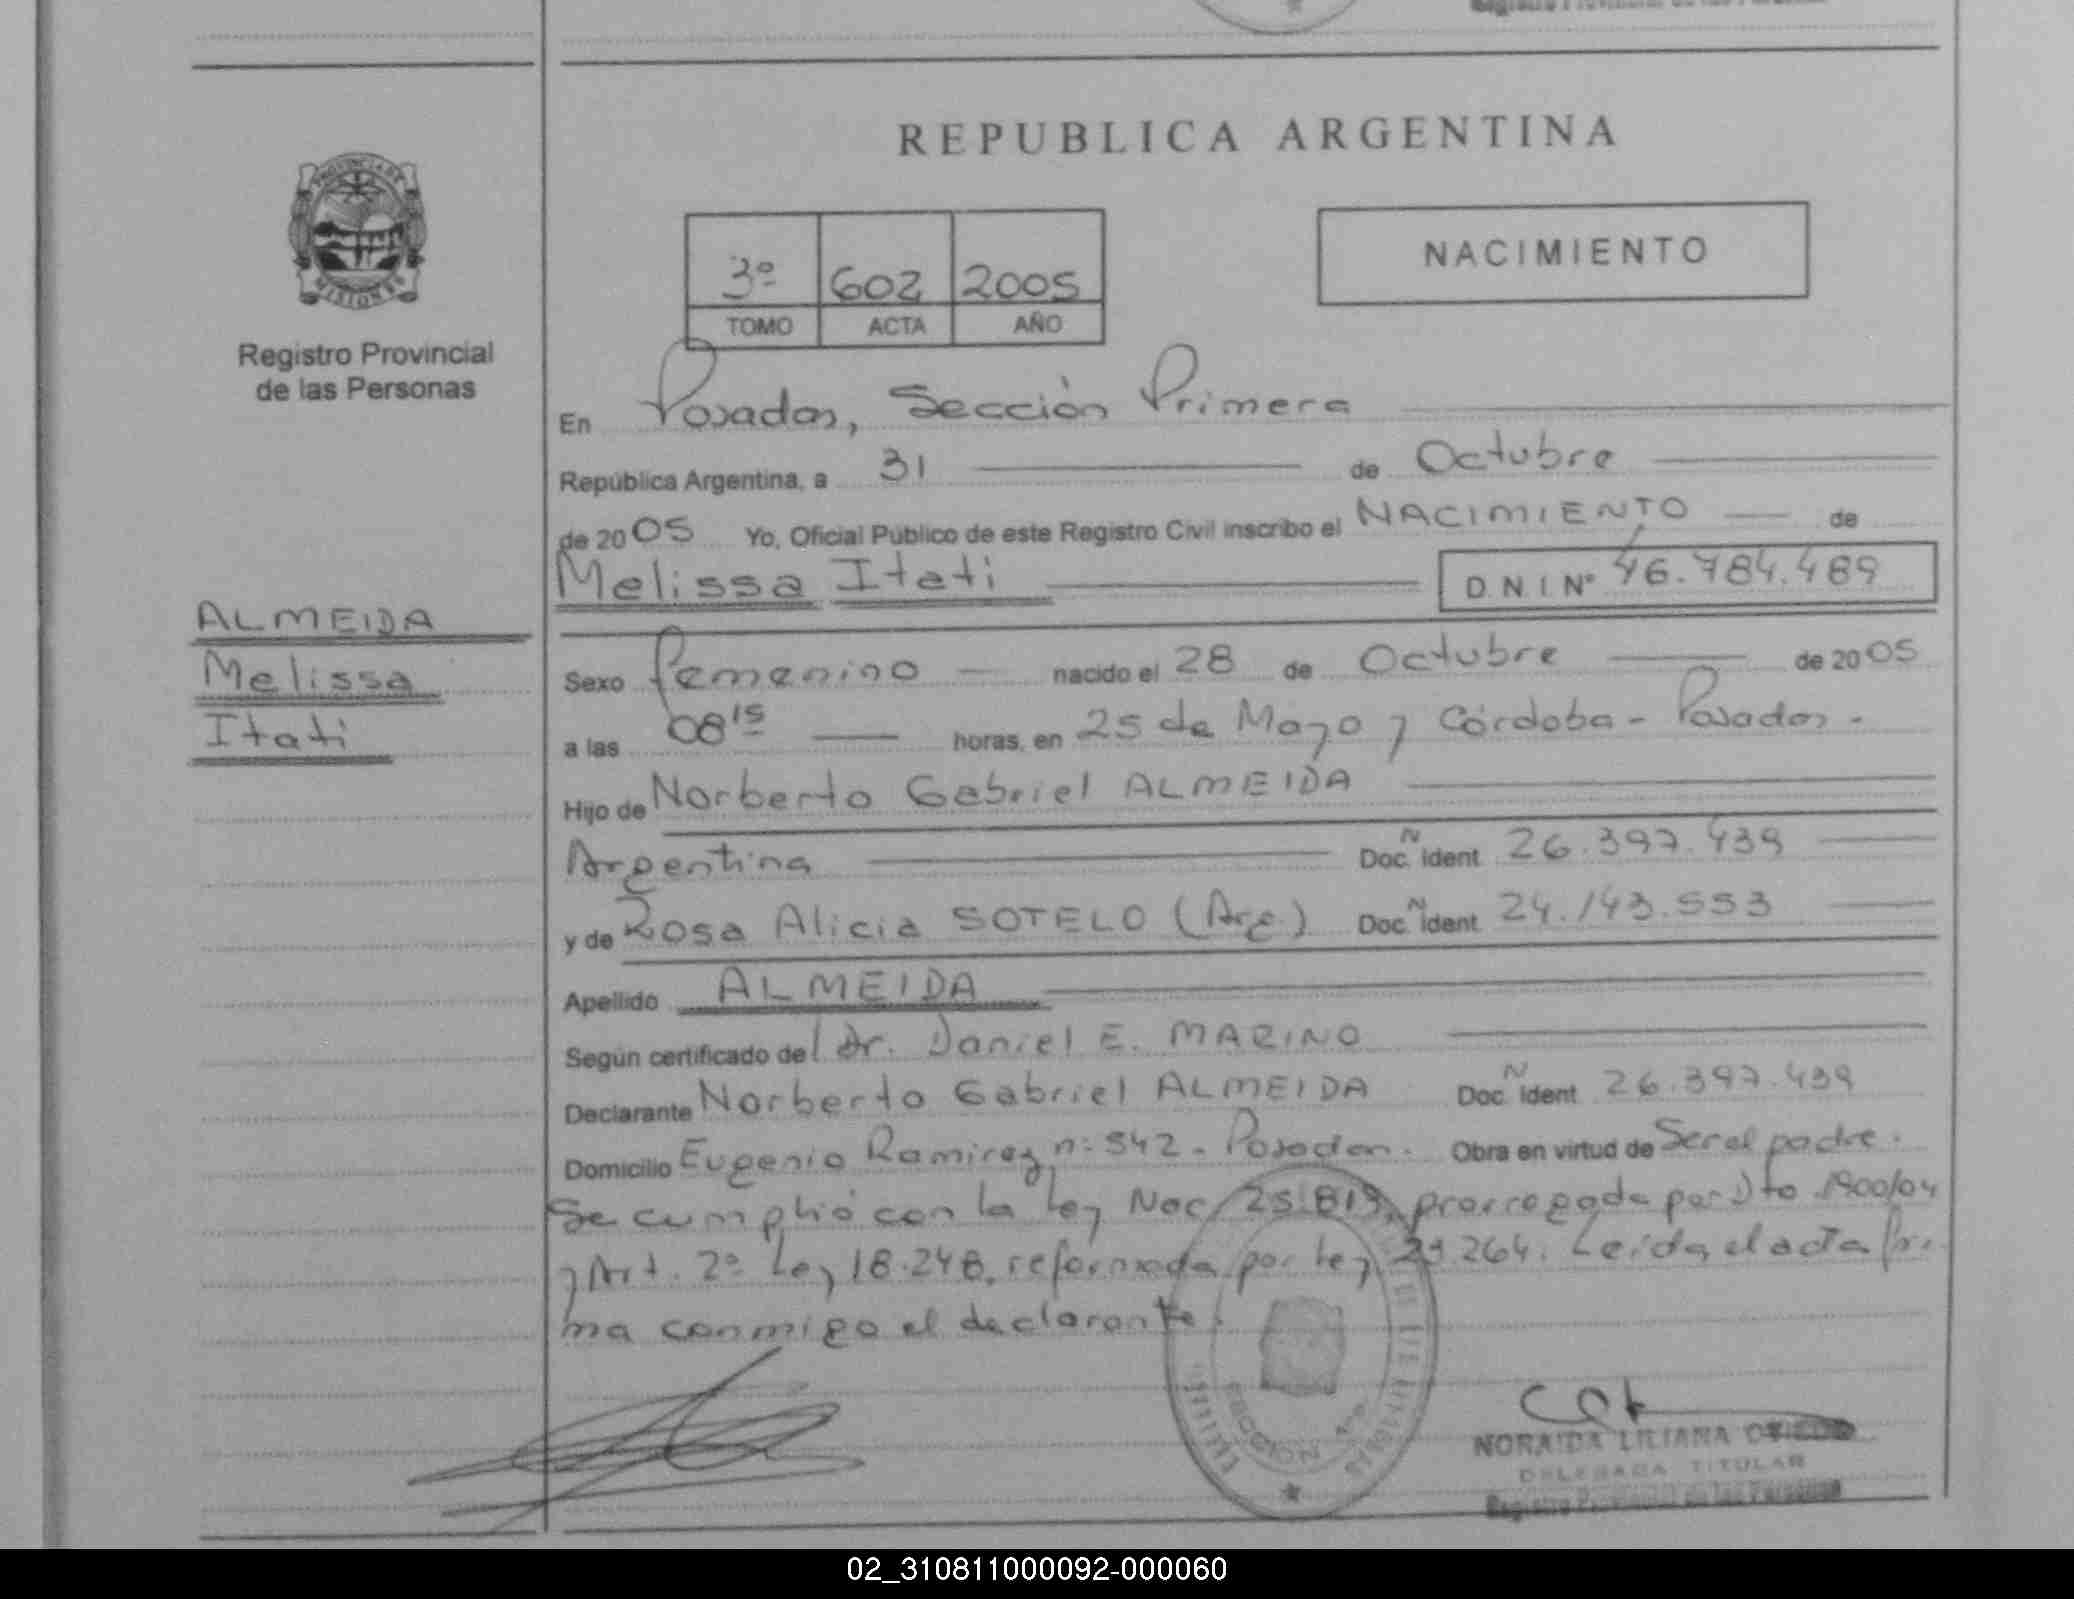 REPUBLICA ARGENTINA
PROVINCIA DE
MISIONES
Registro Provincial
de las Personas
3º 602 2005
TOMO ACTA AÑO
NACIMIENTO
En Posadas, Sección Primera
República Argentina, a 31 de Octubre
de 2005 Yo, Oficial Público de este Registro Civil inscribo el NACIMIENTO de
Melissa Itati D.N.I Nº 46.784.489
ALMEIDA
Melissa
Itati
Sexo femenino nacido el 28 de Octubre de 2005
a las 08 15 horas, en 25 de Mayo y Córdoba - Posadas -
Hijo de Norberto Gabriel ALMEIDA
Argentina Doc. Ident N 26.397.439
y de Rosa Alicia SOTELO (Arg.) Doc. Ident N 24.143.553
Apellido ALMEIDA
Según certificado del Dr. Daniel E. MARINO
Declarante Norberto Gabriel ALMEIDA Doc. Ident N 26.397.439
Domicilio Eugenio Ramirez nº 542 - Posadas. Obra en virtud de Ser el padre.
Se cumplió con la Ley Nac. 25.819, prorrogada por Dto 1900/04
y Art. 2º Ley 18.248, reformada por Ley 23.264. Leída el acta fir-
ma conmigo el declarante.
SECCION 1ra
NORAIDA LILIANA OVIEDO
DELEGADA TITULAR
Registro Provincial de las Personas
02_310811000092-000060